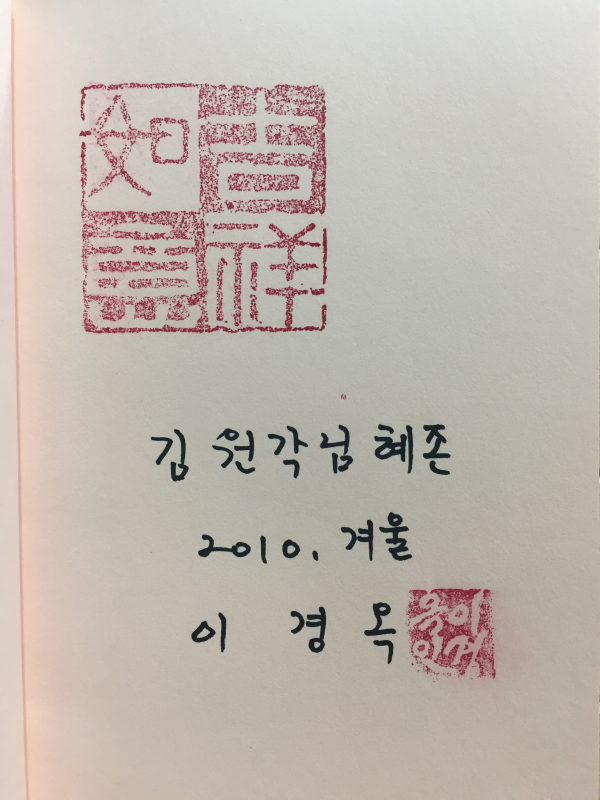 吉祥
如意
김 원각님 혜존
2010. 겨울
이 경 옥
이경
옥인